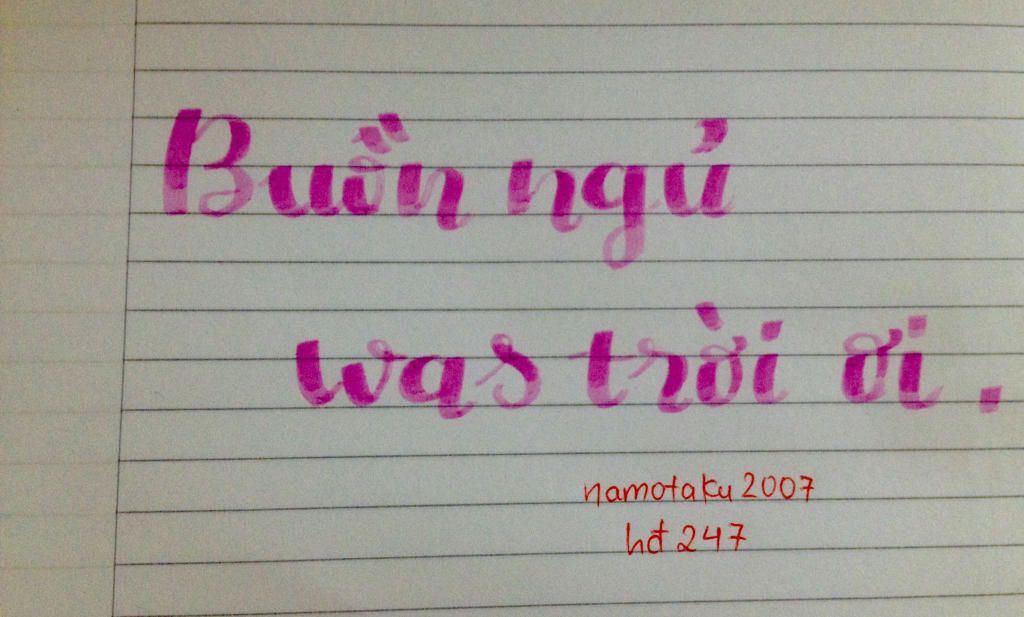 Buồn ngủ
was trời ơi.
namotaku2007
hđ 247